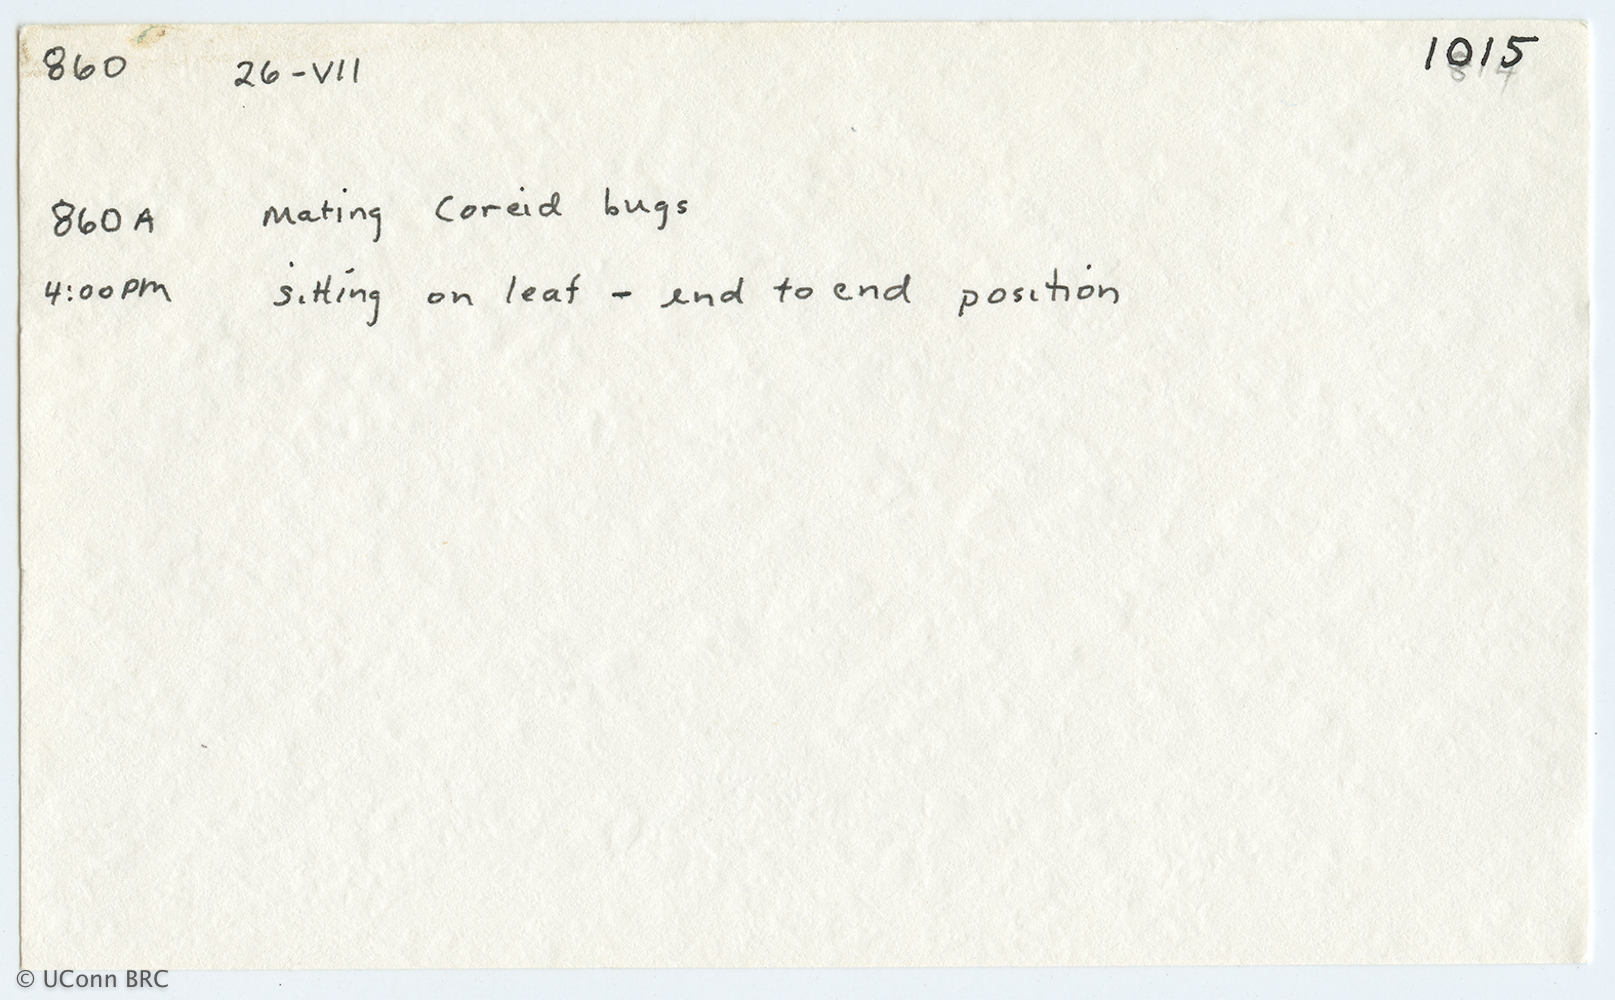 860 26-VII 1015
860A Mating Coreid bugs
4:00pm sitting on leaf - end to end position
© UConn BRC